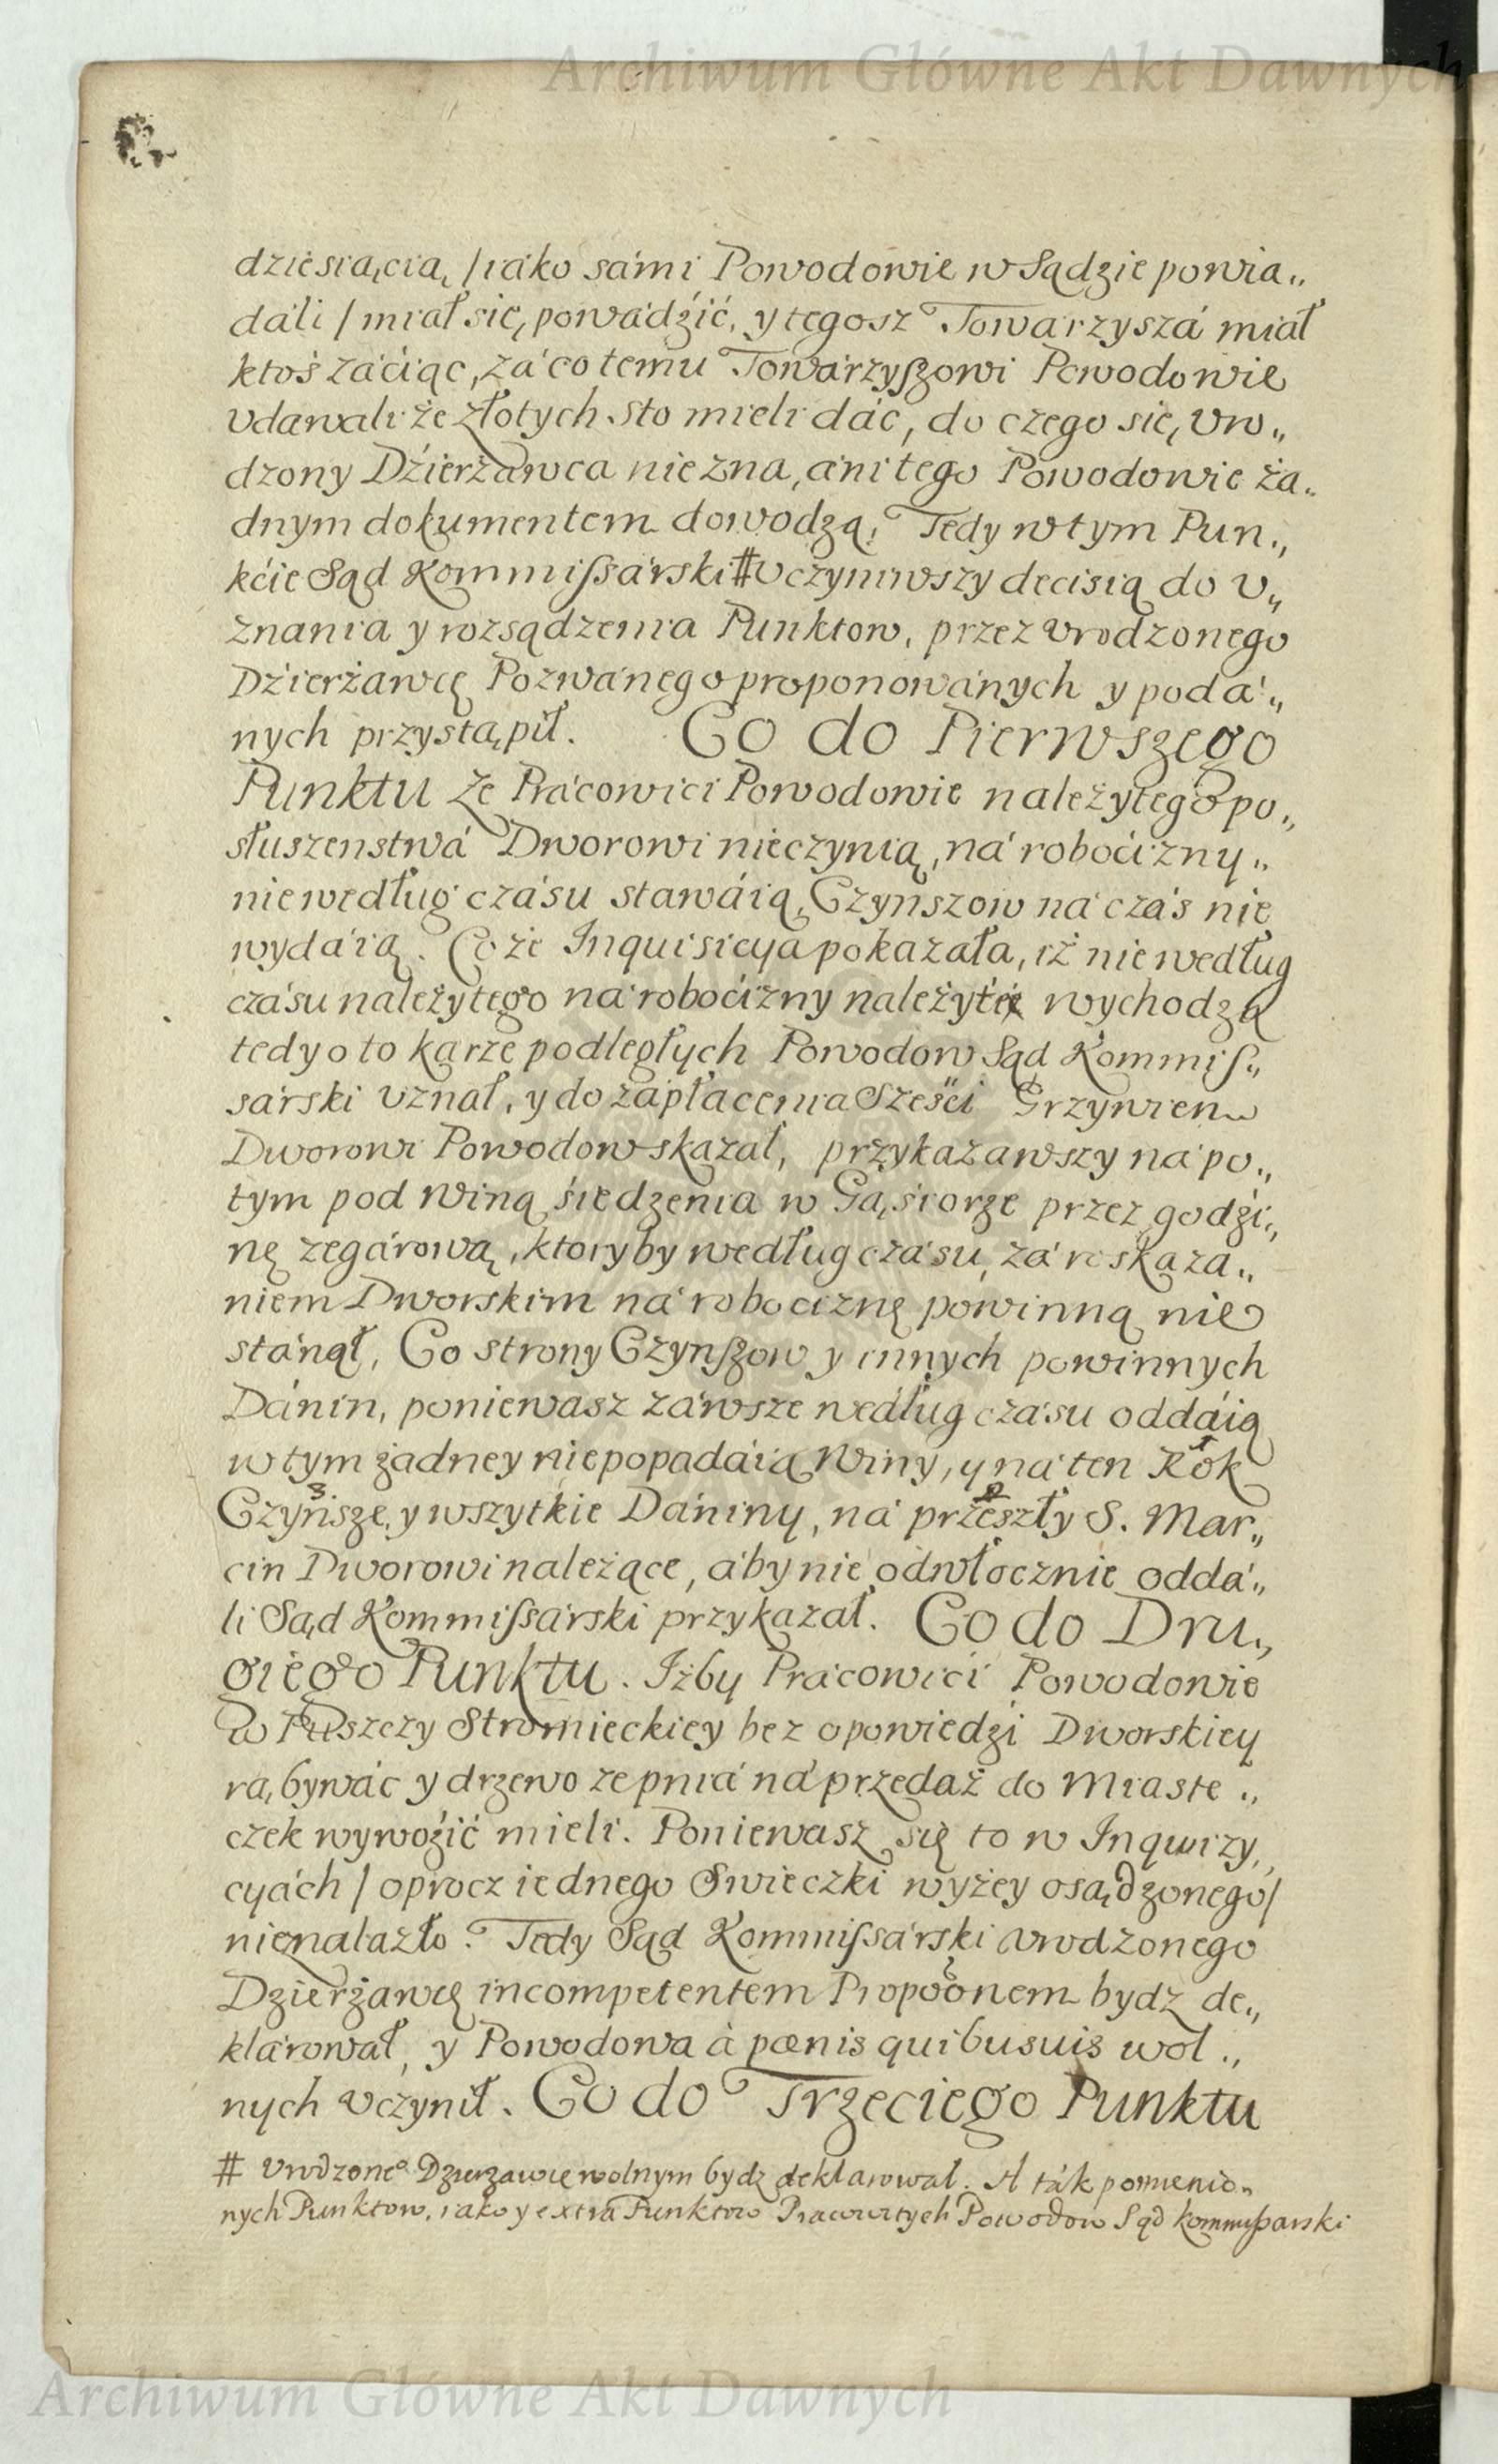 Archiwum Główne Akt Dawnych
dziesiącią /iáko sámi Powodowie w Sądzie powia„
dáli / miał się powádźić, y tegosz Towárzyszá miał
ktoś záciąc, zá co temu Towárzyszowi Powodowie
vdawali że złotych sto mieli dáć, do czego się Vro„
dzony Dźierżáwca nie zna, áni tego Powodowie ża„
dnym dokumentem dowodzą, Tedy w tym Pun„
kćie Sąd Kommissárski # vczyniwszy decisią do v„
znania y rozsądzenia Punktow, przez Vrodzonego
Dźierżawcę Pozwánego proponowánych y podá„
nych przystąpił. Co do Pierwszego
Punktu Ze Prácowici Powodowie należytego po„
słuszenstwá Dworowi nie czynią, ná roboćizny„
nie według czásu stawáią, Czynszow ná czás nie
wydáią. Co że Inquisicya pokazáła, iż nie według
czásu należytego ná roboćizny należyte wychodzą
tedy o to karze podległych Powodow Sąd Kommis„
sárski vznał, y do zápłacenia Sześci Grzywien
Dworowi Powodow skazał, przykazawszy ná po„
tym pod winą śiedzenia w Gąśiorze przez godźi„
nę zegárową, ktoryby według czásu, zá roskaza„
niem Dworskim ná robociznę powinną nie
stánął, Co strony Czynszow y innych powinnych
Dánin, poniewasz záwsze według czásu oddáią
w tym żadney nie popadáią Winy, y ná ten Rok
Czynsze y wszytkie Dániny, ná przeszły S. Mar„
cin Dworowi należące, áby nie odwłocznie oddá„
li Sąd Kommissárski przykazał. Co do Dru„
giego Punktu. Iżby Prácowići Powodowie
w Puszczy Stromieckiey bez opowiedźi Dworskiey
rąbywáć y drzewo ze pniá ná przedaż do Miaste„
czek wywoźić mieli. Poniewasz się to w Inquizy„
cyách / oprocz iednego Swieczki wyżey osądzonego/
nienalazło. Tedy Sąd Kommissárski Vrodzonego
Dzierżawcę incompetentem Propoonem bydz de„
klárował, y Powodowa à pœnis quibusuis wol„
nych vczynił. Co do Trzeciego Punktu
# Vrodzone° Dzierzawcę wolnym bydz deklarował. A ták pomienio„
nych Punktow, iako y extra Punktow Pracowitych Powodow Sąd kommissarski
Archiwum Główne Akt Dawnych